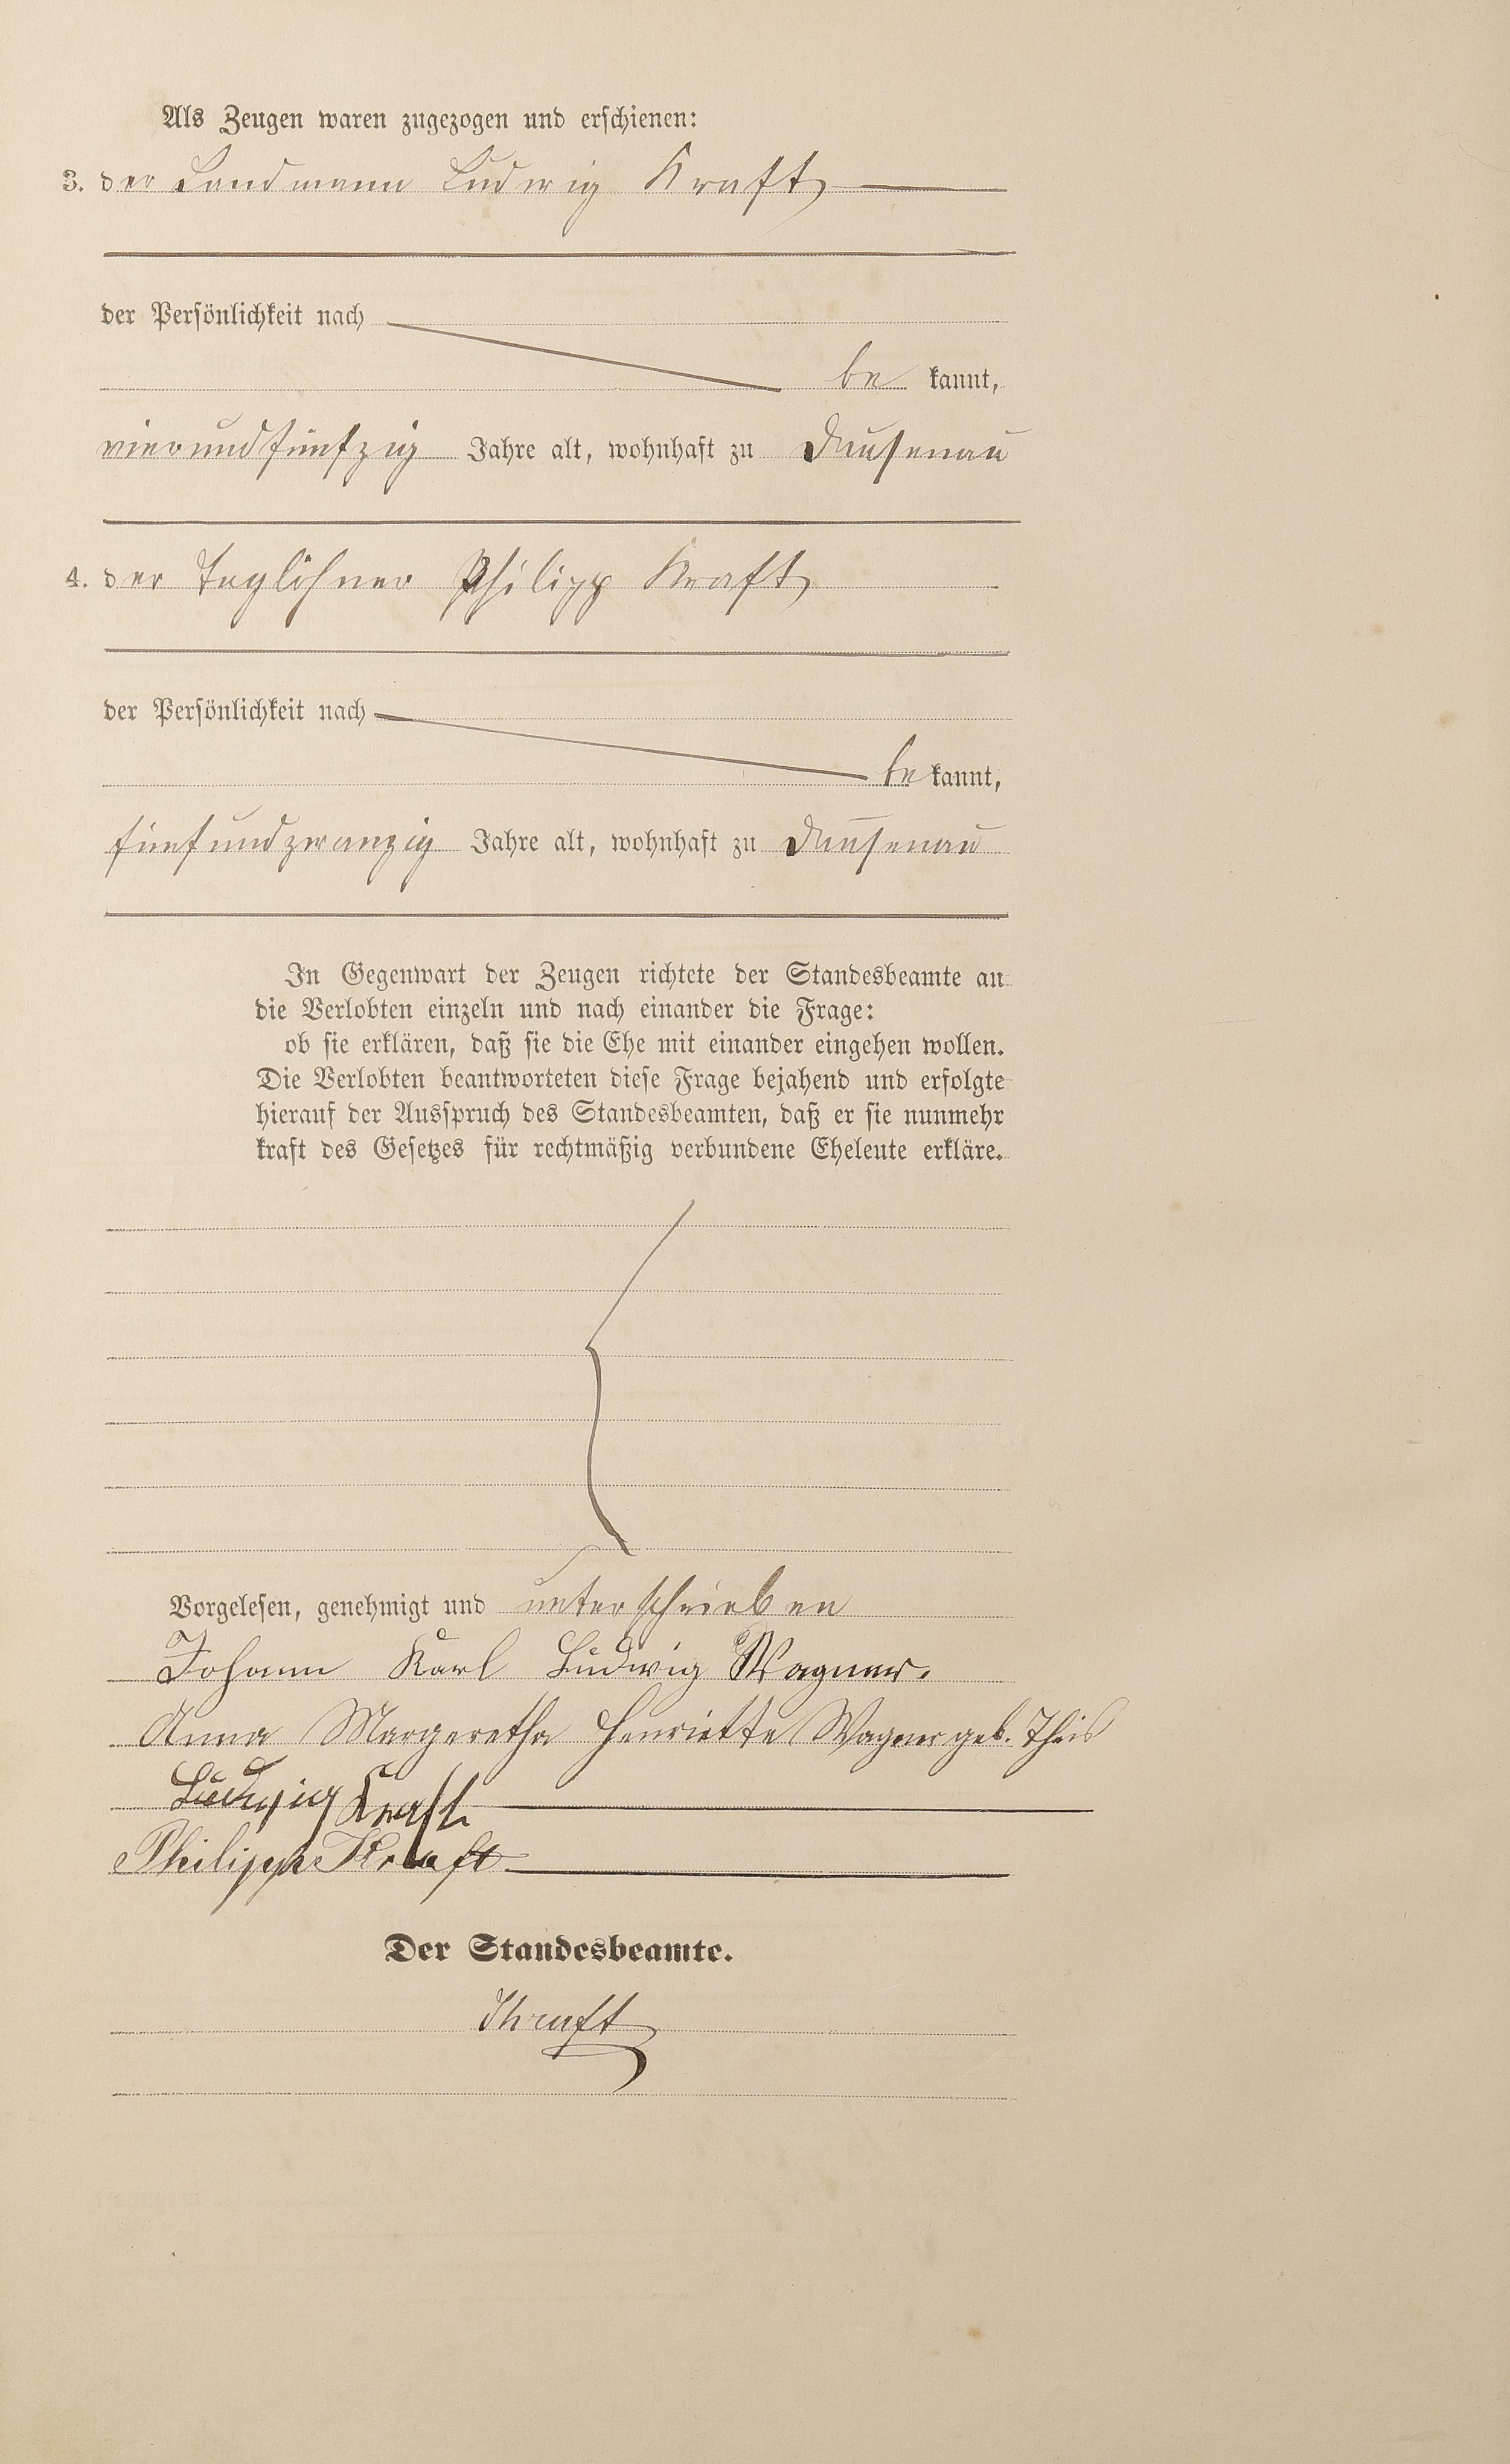 Als Zeugen waren zugezogen und erschienen:
3. der Landmann Ludwig Kraft
der Persönlichkeit nach
be kannt,
vierundfünfzig Jahre alt, wohnhaft zu Dausenau
4. der Taglöhner Philipp Kraft
der Persönlichkeit nach
be kannt,
fünfundzwanzig Jahre alt, wohnhaft zu Dausenau
In Gegenwart der Zeugen richtete der Standesbeamte an
die Verlobten einzeln und nach einander die Frage:
ob sie erklären, daß sie die Ehe mit einander eingehen wollen.
Die Verlobten beantworteten diese Frage bejahend und erfolgte
hierauf der Ausspruch des Standesbeamten, daß er sie nunmehr
kraft des Gesetzes für rechtmäßig verbundene Eheleute erkläre.
Vorgelesen, genehmigt und unterschrieben
Johann Karl Ludwig Wagner.
Anna Margeretha Henriette Wagner geb. Theis
Ludwig Kraft
Philipp Kraft
Der Standesbeamte.